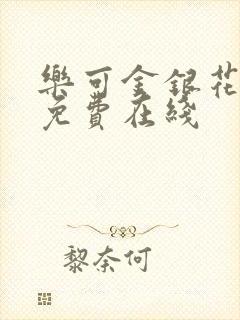 樂可金銀花
免費在綫
黎奈何